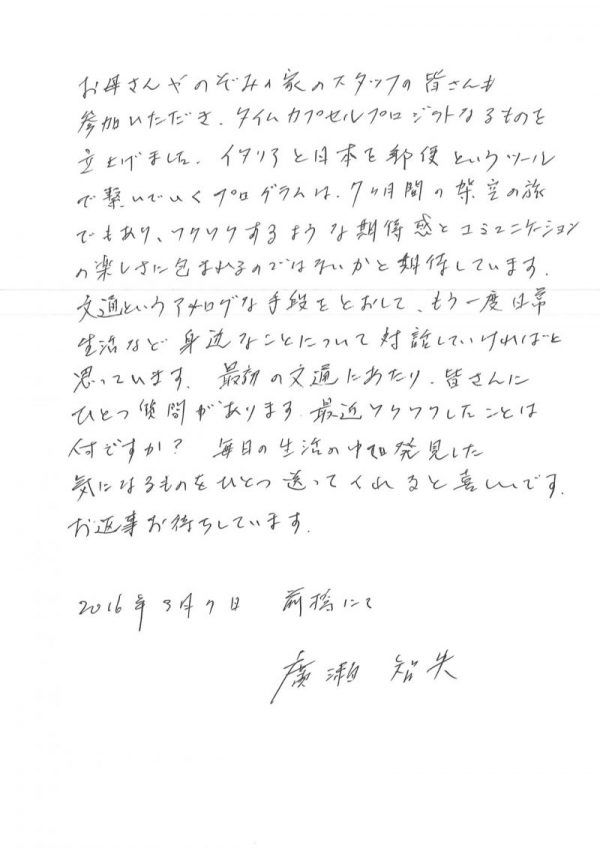 お母さんやのぞみの家のスタッフの皆さんも
参加いただき、タイムカプセルプロジェクトなるものを
立上げました。イタリアと日本を郵便というツール
で繋いでいくプログラムは、7ヶ月間の架空の旅
でもあり、ワクワクするような期待感とコミュニケーション
の楽しさに包まれるのではないかと期待しています。
文通というアナログな手段をとおして、もう一度日常
生活など身近なことについて対話していければと
思っています。最初の文通にあたり、皆さんに
ひとつ質問があります。最近ワクワクしたことは
何ですか? 毎日の生活の中で発見した
気になるものをひとつ送ってくれると喜しいです。
お返事お待ちしています。
2016年3月7日 前橋にて
廣瀬 智央